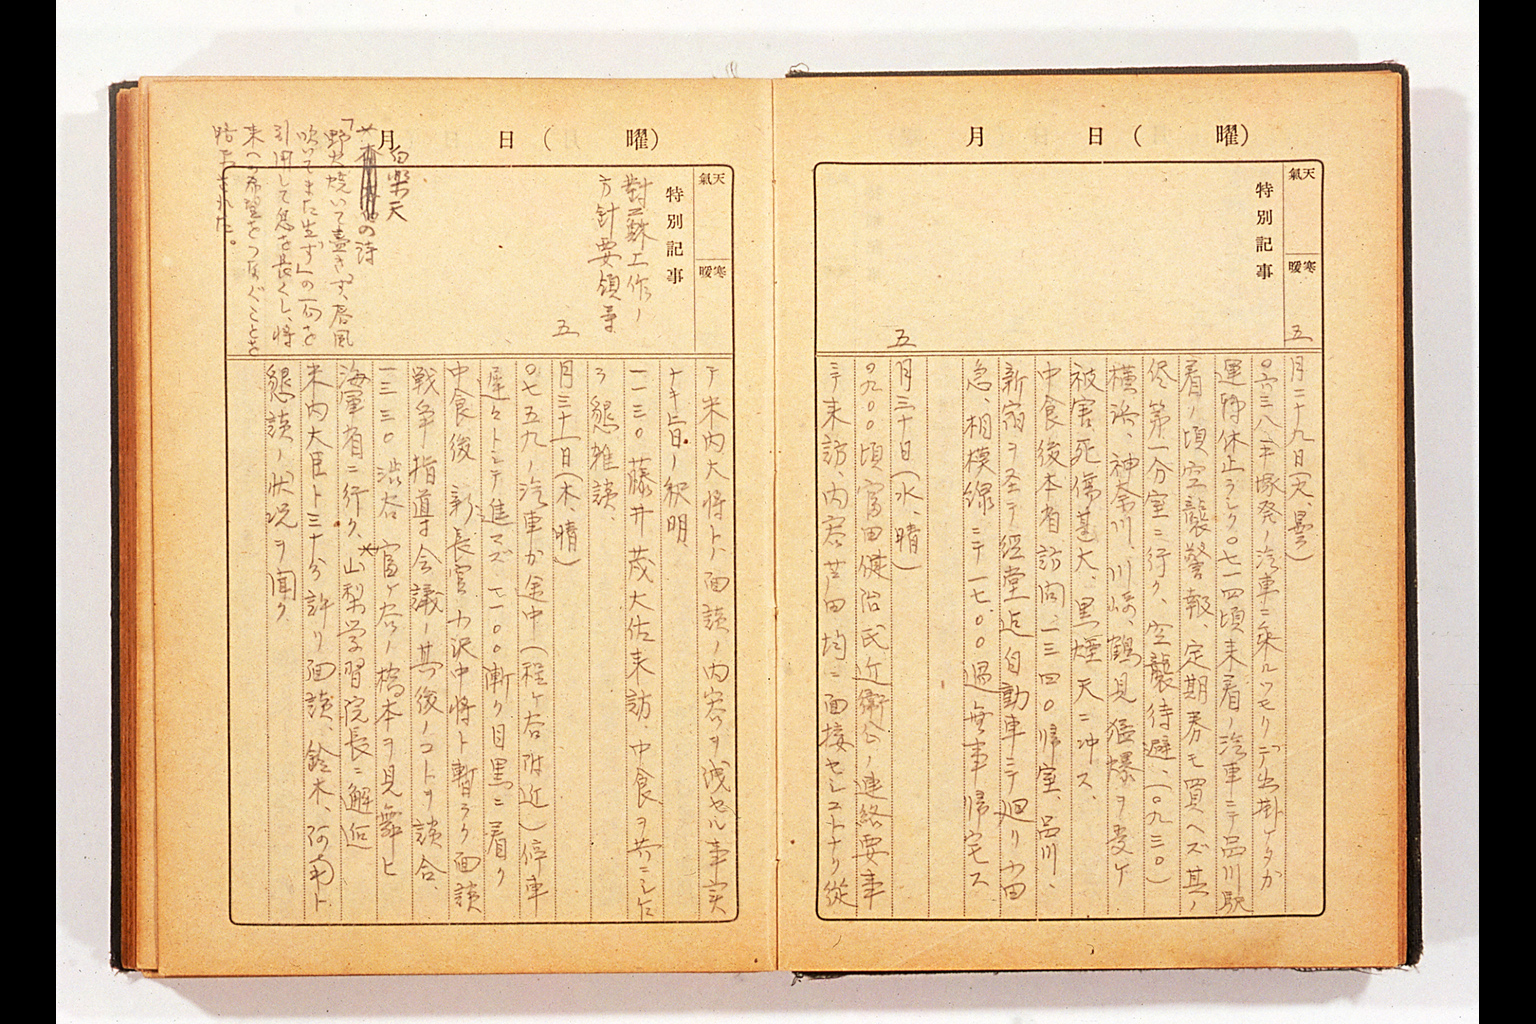 月 日 ( 曜)
天氣
寒暖
特別記事
五
月二十九日(火、曇)
〇六三八平塚発ノ汽車ニ乗ルツモリデ出掛ケタカ
運転休止ラシク〇七一四頃来着ノ汽車ニテ品川駅
着ノ頃空襲警報、定期券モ買ヘズ其ノ
侭第一分室ニ行ク、空襲待避、(〇九三〇)
横浜、神奈川、川崎、鶴見猛爆ヲ受ケ
被害、死傷甚大、黒煙天ニ冲ス、
中食後本省訪問、一三四〇帰室、品川、
新宿ヲ圣テ経堂迄自動車ニテ廻リ小田
急、相模線ニテ一七〇〇過無事帰宅ス
五
月三十日(水、晴)
〇九〇〇頃富田健治氏近衛公ノ連絡要事
ニテ来訪、内容芦田均ニ面接セシコトナリ従
月 日 ( 曜)
天氣
寒暖
特別記事
對蘇工作ノ
方針要領等
テ米内大将ト、面談ノ内容ヲ洩セル事実
ナキ旨ノ釈明
一一三〇藤井茂大佐来訪、中食ヲ共ニシ乍
ラ懇雑談
五
月三十一日(木、晴)
〇七五九ノ汽車か途中(程ヶ谷附近)停車
遅々トシテ進マズ一一〇〇漸ク目黒ニ着ク
中食後 新長官カ沢中将ト暫ラク面談
戦争指導会議ノ其後ノコトヲ談合、
一三三〇 渋谷 富ヶ谷ノ橋本ヲ見舞ヒ
海軍省ニ行ク、山梨学習院長ニ邂逅
米内大臣ト三十分許リ面談、鈴木、阿南ト
懇談ノ状況ヲ聞ク
白樂天
の詩
「野火焼いて盡きず、春風
吹いてまた生ず」の一句を
引用して息を長くし、将
来への希望をつなぐことを
話された。